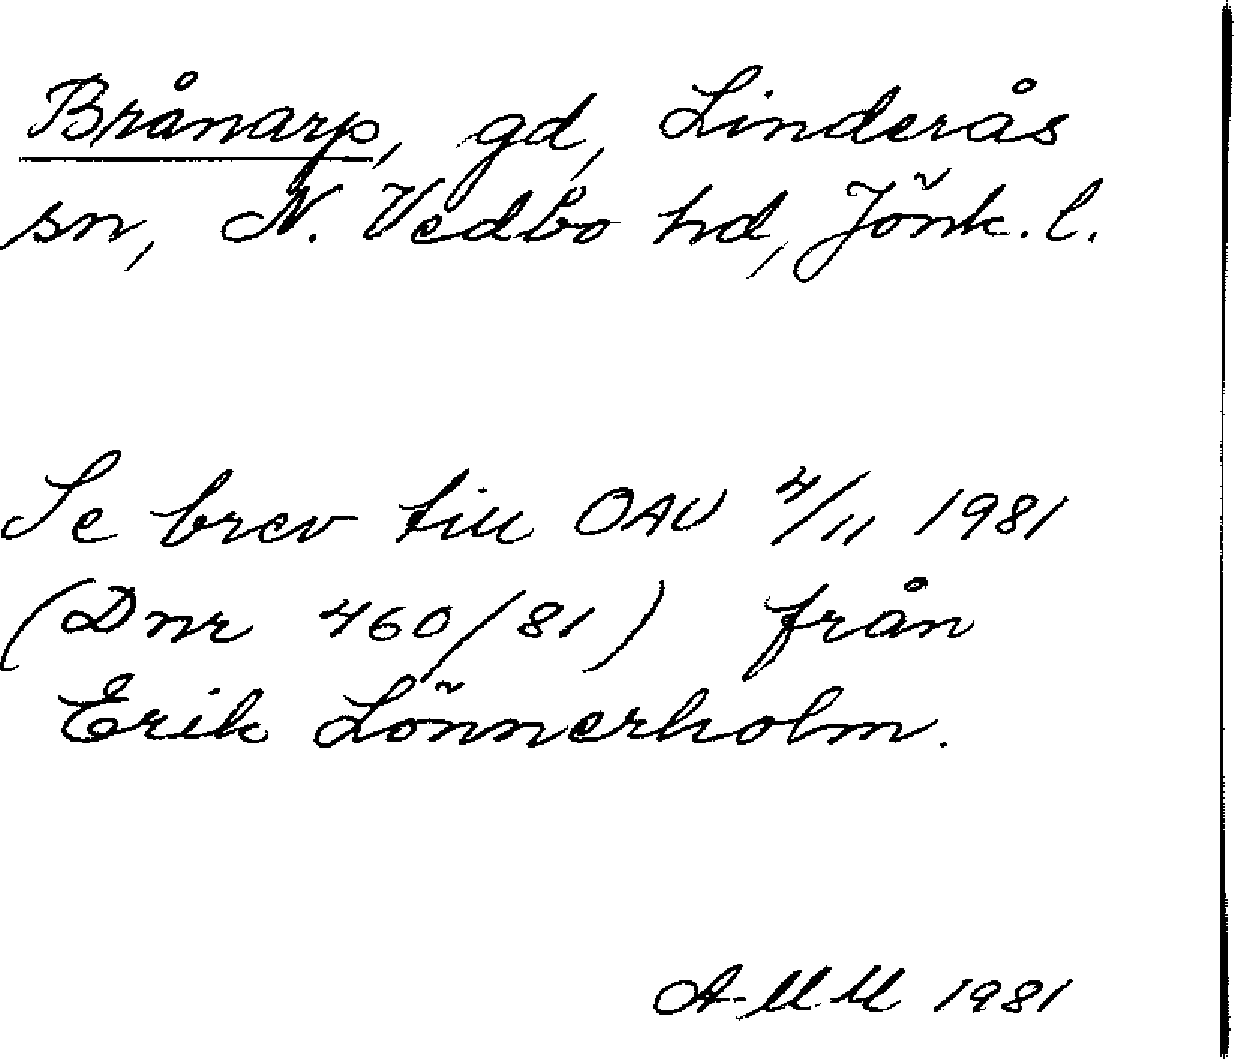 Brånarp, gd, Linderås
sn, N. Vedbo hd, Jönk. l.
Se brev till OAU 4/11 1981
(Dnr 460/81) från
Erik Lönnerholm.
A-MM 1981